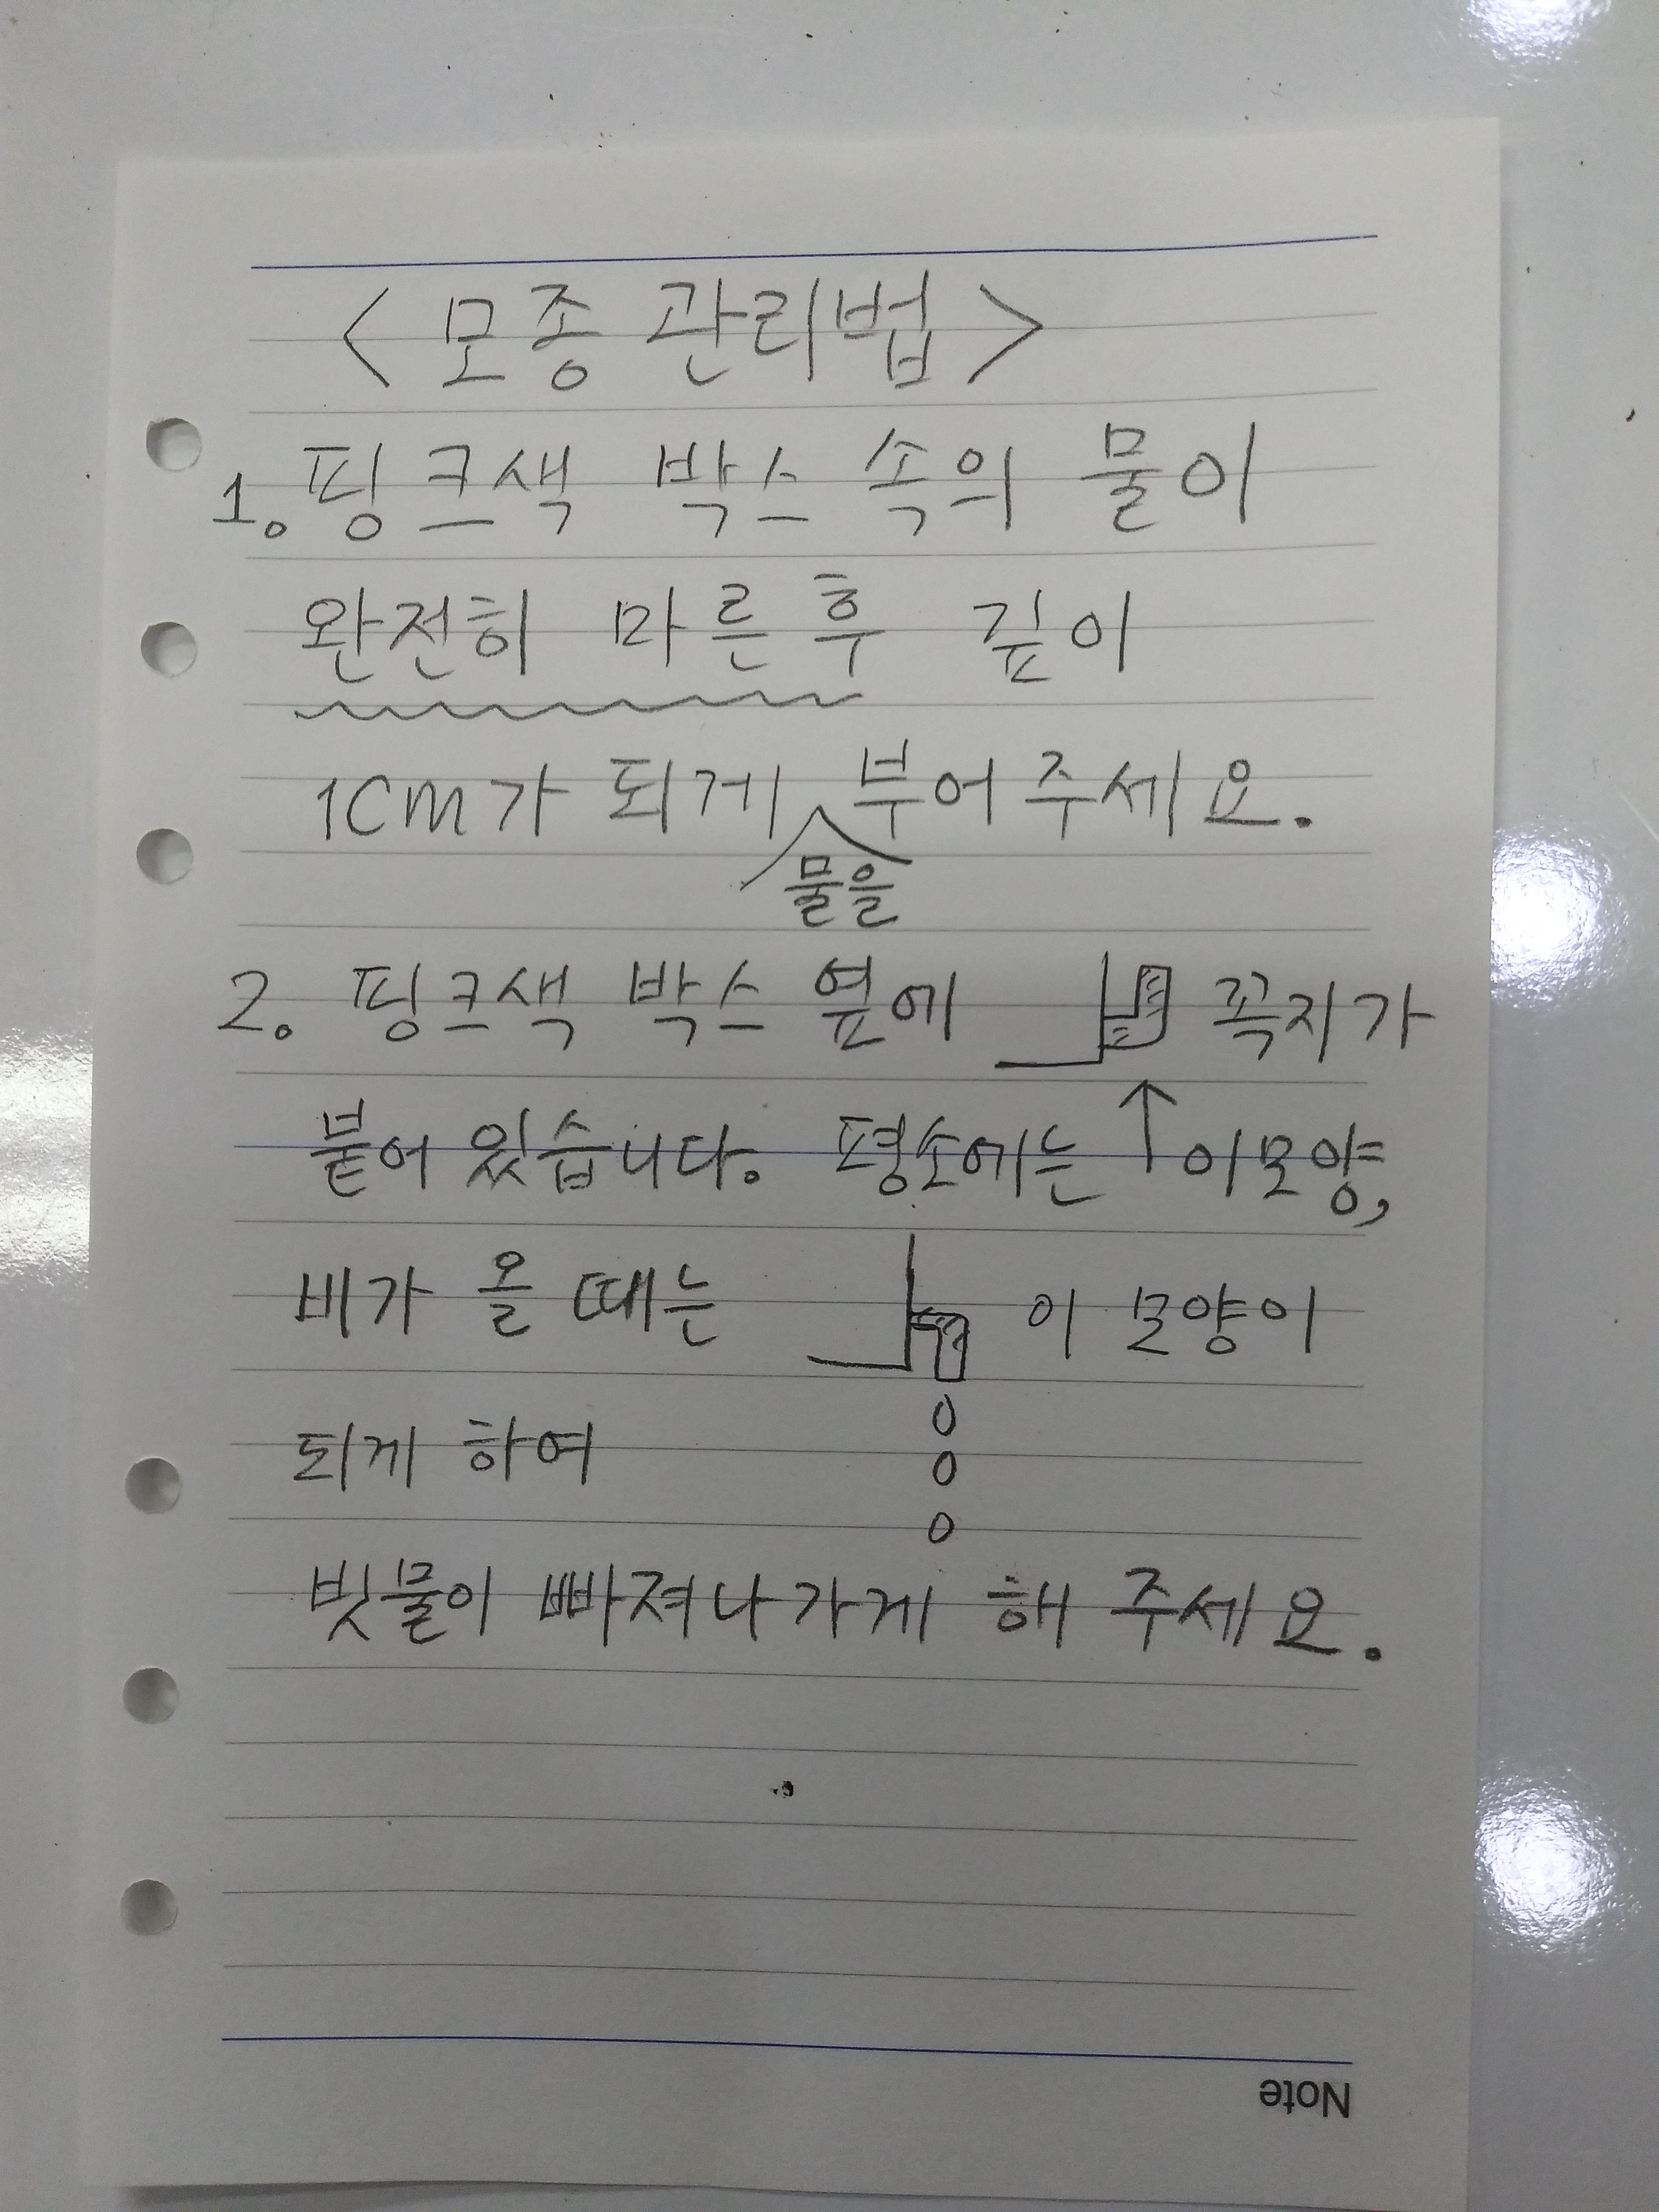 <모종 관리법>
1. 핑크색 박스 속의 물이
완전히 마른후 깊이
1cm가 되게 부어 주세요.
물을
2. 핑크색 박스 옆에 꼭지가
붙어 있습니다. 평소에는 ↑ 이모양,
비가 올 때는 이 모양이
되게 하여
빗물이 빠져나가게 해 주세요.
Note